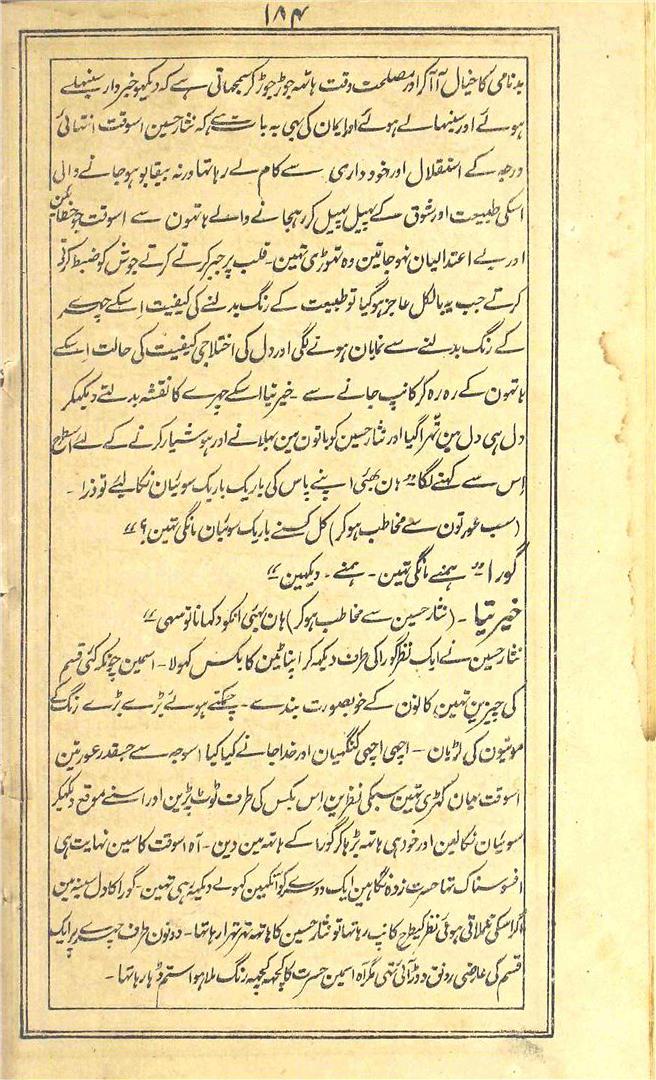 ۱۸۴
بدنامی کا خیال آ آ کر اور مصلحت وقت ہاتھہ جوڑ جوڑ کر سمجھاتی ہے کہ دیکھو خبردار سنبھلے
ہوئے اور سنبھالے ہوئے اور ایمان کی یہی یہ بات ہے کہ نثار حسین اسوقت انتہائی
درجہ کے استقلال اور خودداری سے کام لے رہا تھا ورنہ بیقابو ہو جانے والی
اسکی طبیعت اور شوق کے پھیل پھیل کر رہجانے والے ہاتھون سے اسوقت جو جو
اور بے اعتدالیان نہو جاتین وہ تھوڑی تھین۔ قلب پر جبر کرتے کرتے جوش کو ضبط کرتے
کرتے جب یہ بالکل عاجز ہو گیا تو طبیعت کے رنگ بدلنے کی کیفیت اسکے چہرے
کے رنگ بدلنے سے نمایان ہونے لگی اور دل کی اختلاجی کیفیت کی حالت اسکے
ہاتھون کے رہ رہ کر کانپ جانے سے ۔ خیرتیا اسکے چہرے کا نقشہ بدلتے دیکھکر
دل ہی دل مین تھرا گیا اور نثار حسین کو باتون مین بہلانے اور ہوشیار کرنے کے لئے اسطرح
اس سے کہنے لگا ”ہان بھئی اپنے پاس کی باریک باریک سوئیان نکالئے تو ذرا ۔
(سب عورتون سے مخاطب ہو کر) کل کسنے باریک سوئیان مانگی تھین؟“
گورا ”ہمنے مانگی تھین ۔ ہمنے ۔ دیکھین“
خیرتیا ۔ (نثار حسین سے مخاطب ہو کر) ہان بھئی انکو دکھانا تو سہی“
نثار حسین نے ایک نظر گورا کی طرف دیکھہ کر اپنا ٹین کا بکس کھولا ۔ اسمین چونکہ کئی قسم
کی چیزین تھین کانون کے خوبصورت بندے ۔ چمکتے ہوئے بڑے بڑے رنگ کے
موتیون کی لڑیان ۔ اچھی اچھی کنگھیان اور خدا جانے کیا کیا اسوجہ سے جسقدر عورتین
اسوقت یہان کھڑی تھین سبکی نظرین اس بکس کی طرف ٹوٹ پڑین اور اسنے موقع دیکھکر
سوئیان نکالین اور خود ہی ہاتھہ بڑھا کر گورا کے ہاتھہ مین دین ۔ آہ اسوقت کا سین نہایت ہی
افسوسناک تھا حسرت زدہ نگاہین ایک دوسرے کو آنکھین کھولے دیکھہ رہی تھین ۔ گورا کا دل سینہ مین
اگر اسکی تھلاتی ہوئی نظر کیطرح کانپ رہا تھا تو نثار حسین کا ہاتھہ تھر تھرا رہا تھا ۔ دونون طرف چہرے پر ایک
قسم کی عارضی رونق دوڑ آئی تھی مگر آہ اسمین حسرت کا کچھہ کچھہ رنگ ملا ہوا ستم ڈھا رہا تھا ۔